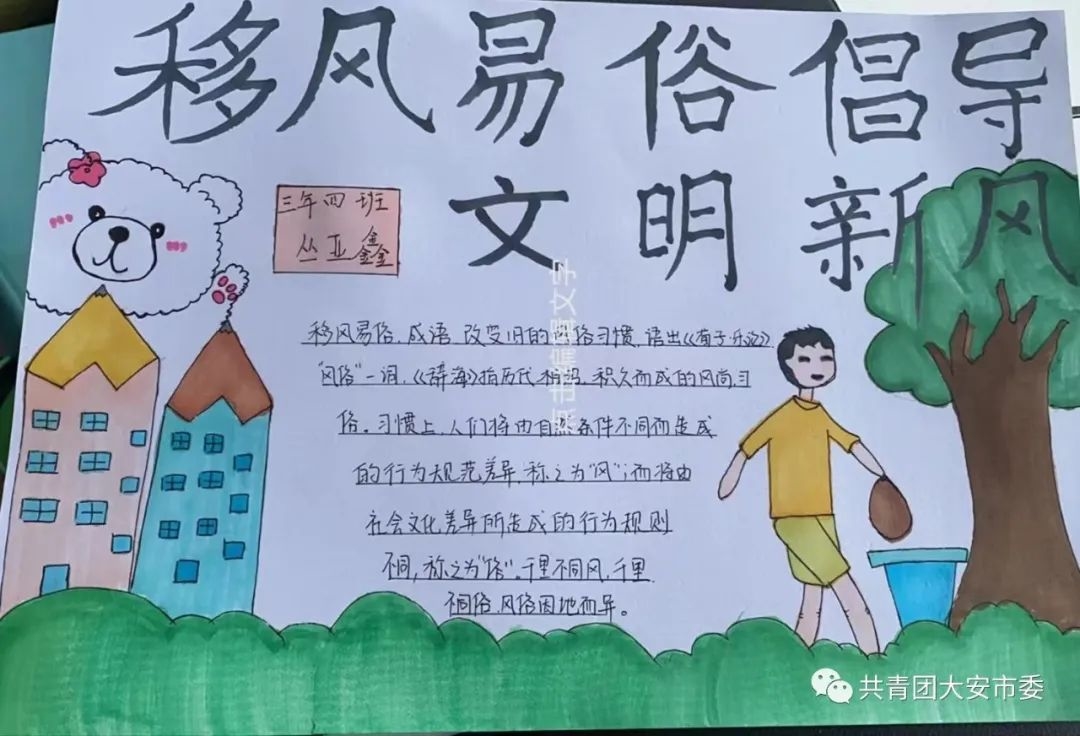 移风易俗倡导
文明新风
三年四班
丛亚鑫
移风易俗,成语,改变旧的风俗习惯,语出《荀子·乐论》
"风俗"一词,《辞海》指历代相沿,积久而成的风尚,习
俗。习惯上,人们将由自然条件不同而造成
的行为规范差异,称之为"风";而将由
社会文化差异所造成的行为规则
不同,称之为"俗"。千里不同风,千里
不同俗,风俗因地而异。
点击编辑文字
共青团大安市委